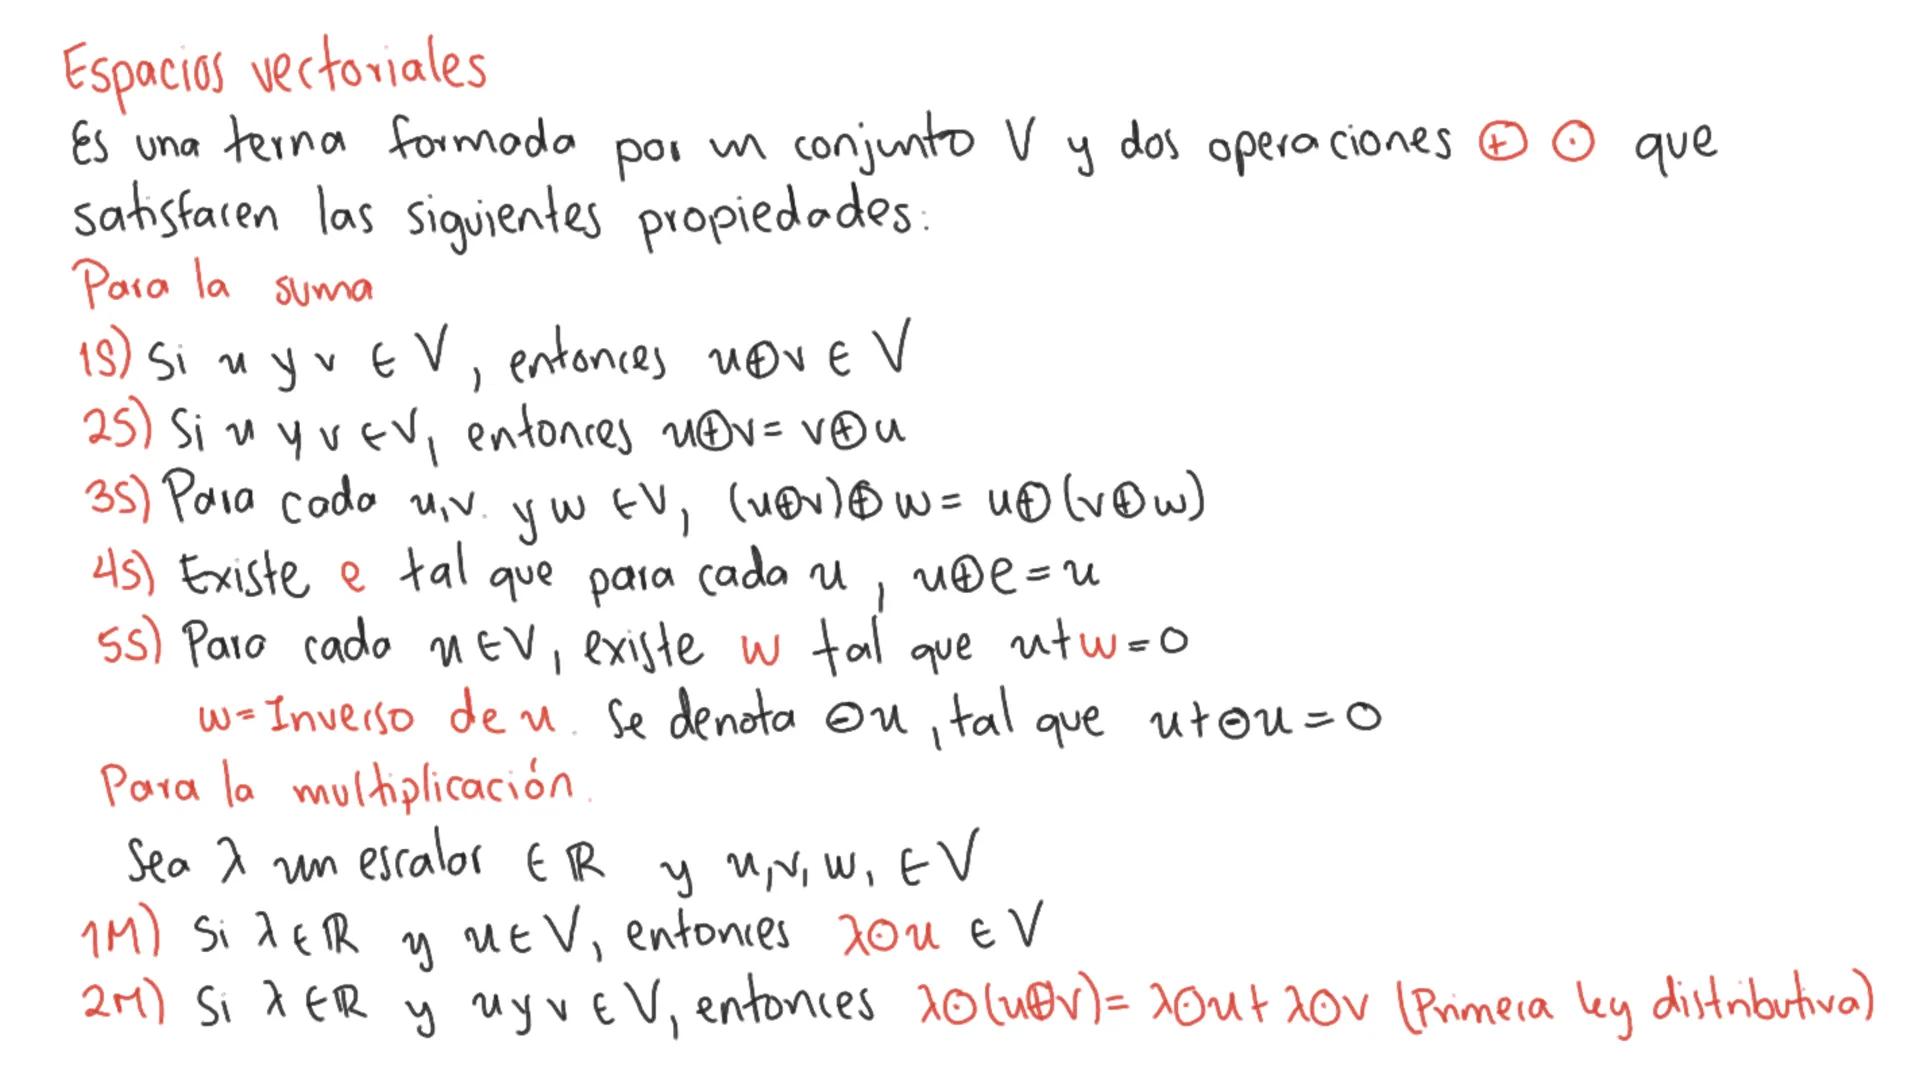 Espacios vectoriales
Es una terna formada por un conjunto V y dos operaciones ⊕ ⊙ que
satisfacen las siguientes propiedades:
Para la suma
1S) Si u y v ∈ V, entonces u⊕v ∈ V
2S) Si u y v ∈ V, entonces u⊕v = v⊕u
3S) Para cada u, v. y w ∈ V, (u⊕v)⊕w = u⊕(v⊕w)
4S) Existe e tal que para cada u, u⊕e = u
5S) Para cada u ∈ V, existe w tal que u+w=0
w=Inverso de u. Se denota ⊖u, tal que u+⊖u=0
Para la multiplicación.
Sea λ un escalar ∈ ℝ y u, v, w, ∈ V
1M) Si λ ∈ ℝ y u ∈ V, entonces λ⊙u ∈ V
2M) Si λ ∈ ℝ y u y v ∈ V, entonces λ⊙(u⊕v)= λ⊙u+ λ⊙v (Primera ley distributiva)